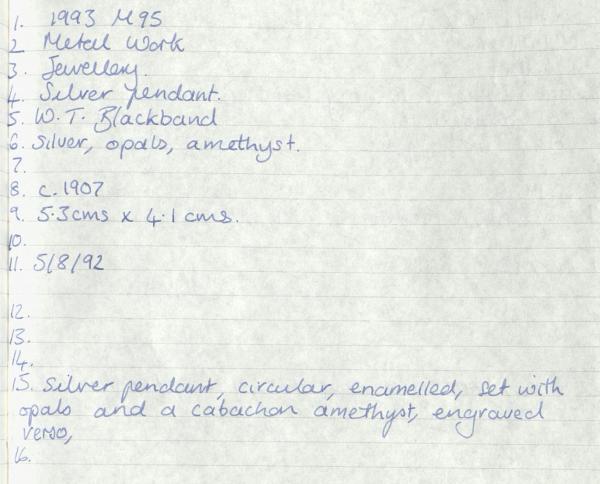 1. 1993 M95
2 Metal Work
3. Jewellery.
4. Silver pendant.
5. W.T. Blackband
6. Silver, opals, amethyst.
7.
8. c.1907
9. 5.3cms x 4.1 cms.
10.
11. 5/8/92
12.
13.
14.
15. Silver pendant, circular, enamelled, set with
opals and a cabachon amethyst, engraved
verso,
16.